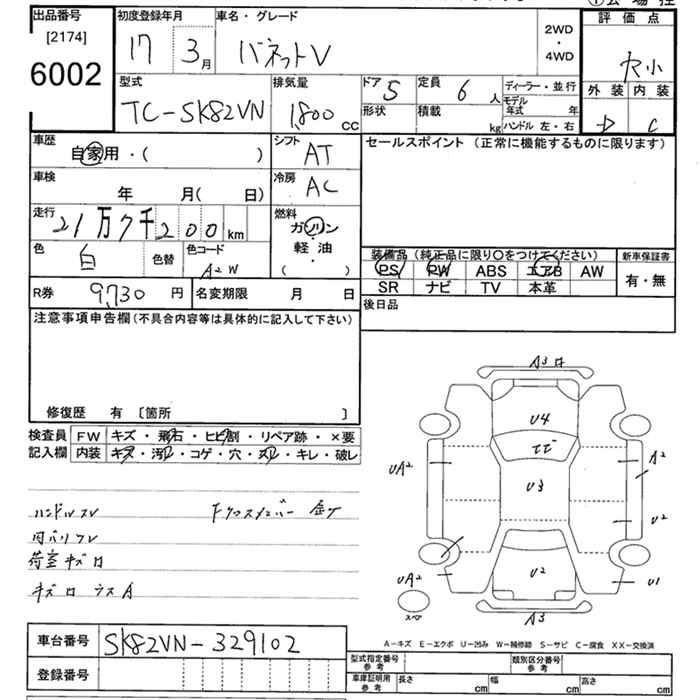 出品番号
[2174]
6002
初度登録年月
17 3月
車名・グレード
バネットV
2WD
・
4WD
評価点
外装 内装
C
型式
TC-SK82VN
排気量
1,800 CC
ドア 5
定員 6 人
ディーラー・並行
モデル年式 年
形状
積載 kg
ハンドル 左・右
車歴
自家用・( )
シフト
AT
車検
年 月( 日)
冷房
AC
走行
21万7千200km
燃料
ガソリン
・
軽油
( )
色
白
色替
色コード
A2W
R券 9,730円
名変期限 月 日
セールスポイント (正常に機能するものに限ります)
装備品 (純正品に限り○をつけてください)
PS PW ABS エアB AW
SR ナビ TV 本革
新車保証書
有・無
後日品
注意事項申告欄(不具合内容等は具体的に記入して下さい)
修復歴 有 [箇所 ]
検査員記入欄
FW キズ・飛石・ヒビ割・リペア跡・×要
内装 キズ・汚れ・コゲ・穴・スレ・キレ・破レ
ハンドルスレ
内バリスレ
荷室キズロ
A3ロ
U4
UA2
A2
U3
U2
UA2
U2
U1
スペア
A3
A－キズ E－エクボ U－凹み W－補修跡 S－サビ C－腐食 XX－交換済
車台番号 SK82VN-329102
登録番号
型式指定番号
参考
類別区分番号
参考
車庫証明用
参考
長さ cm
幅 cm
高さ cm